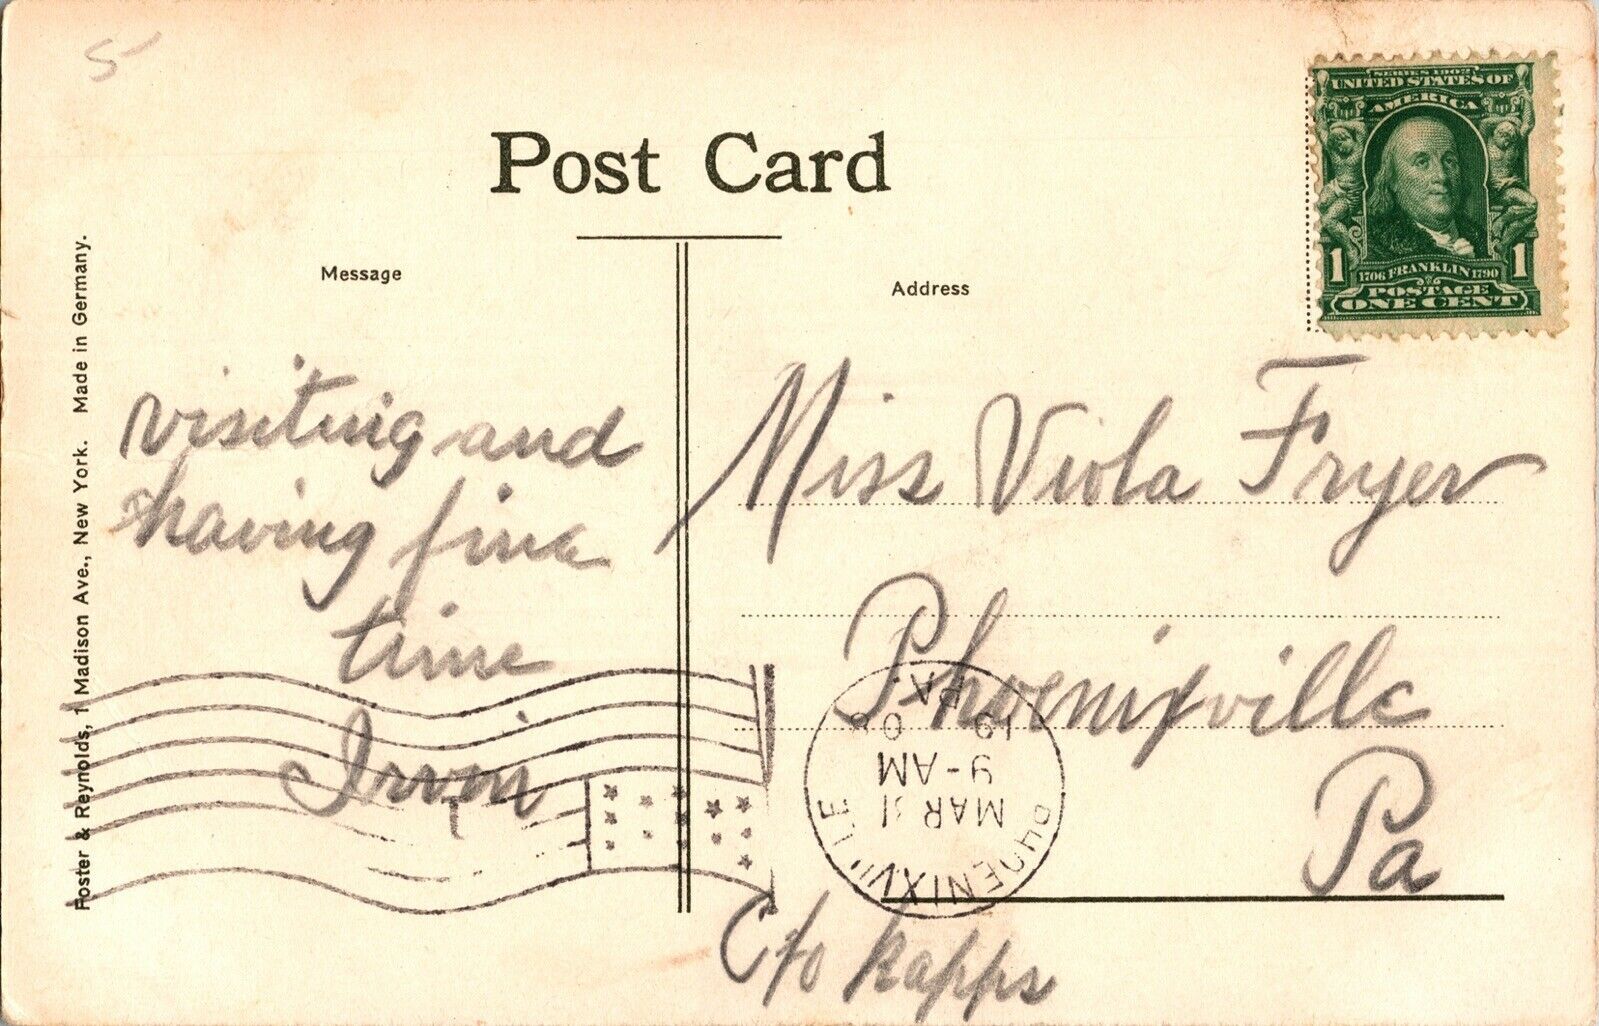 5
Post Card
Message
Address
SERIES 1902
UNITED STATES OF
AMERICA
1706 FRANKLIN 1790
1 1
POSTAGE
ONE CENT
visiting and
having fine
time
Irvin
Miss Viola Fryer
Phoenixville
Pa
c/o Kapps
PHOENIXVILLE
MAR 31
9-AM
1908
PA.
Foster & Reynolds, 1 Madison Ave., New York. Made in Germany.